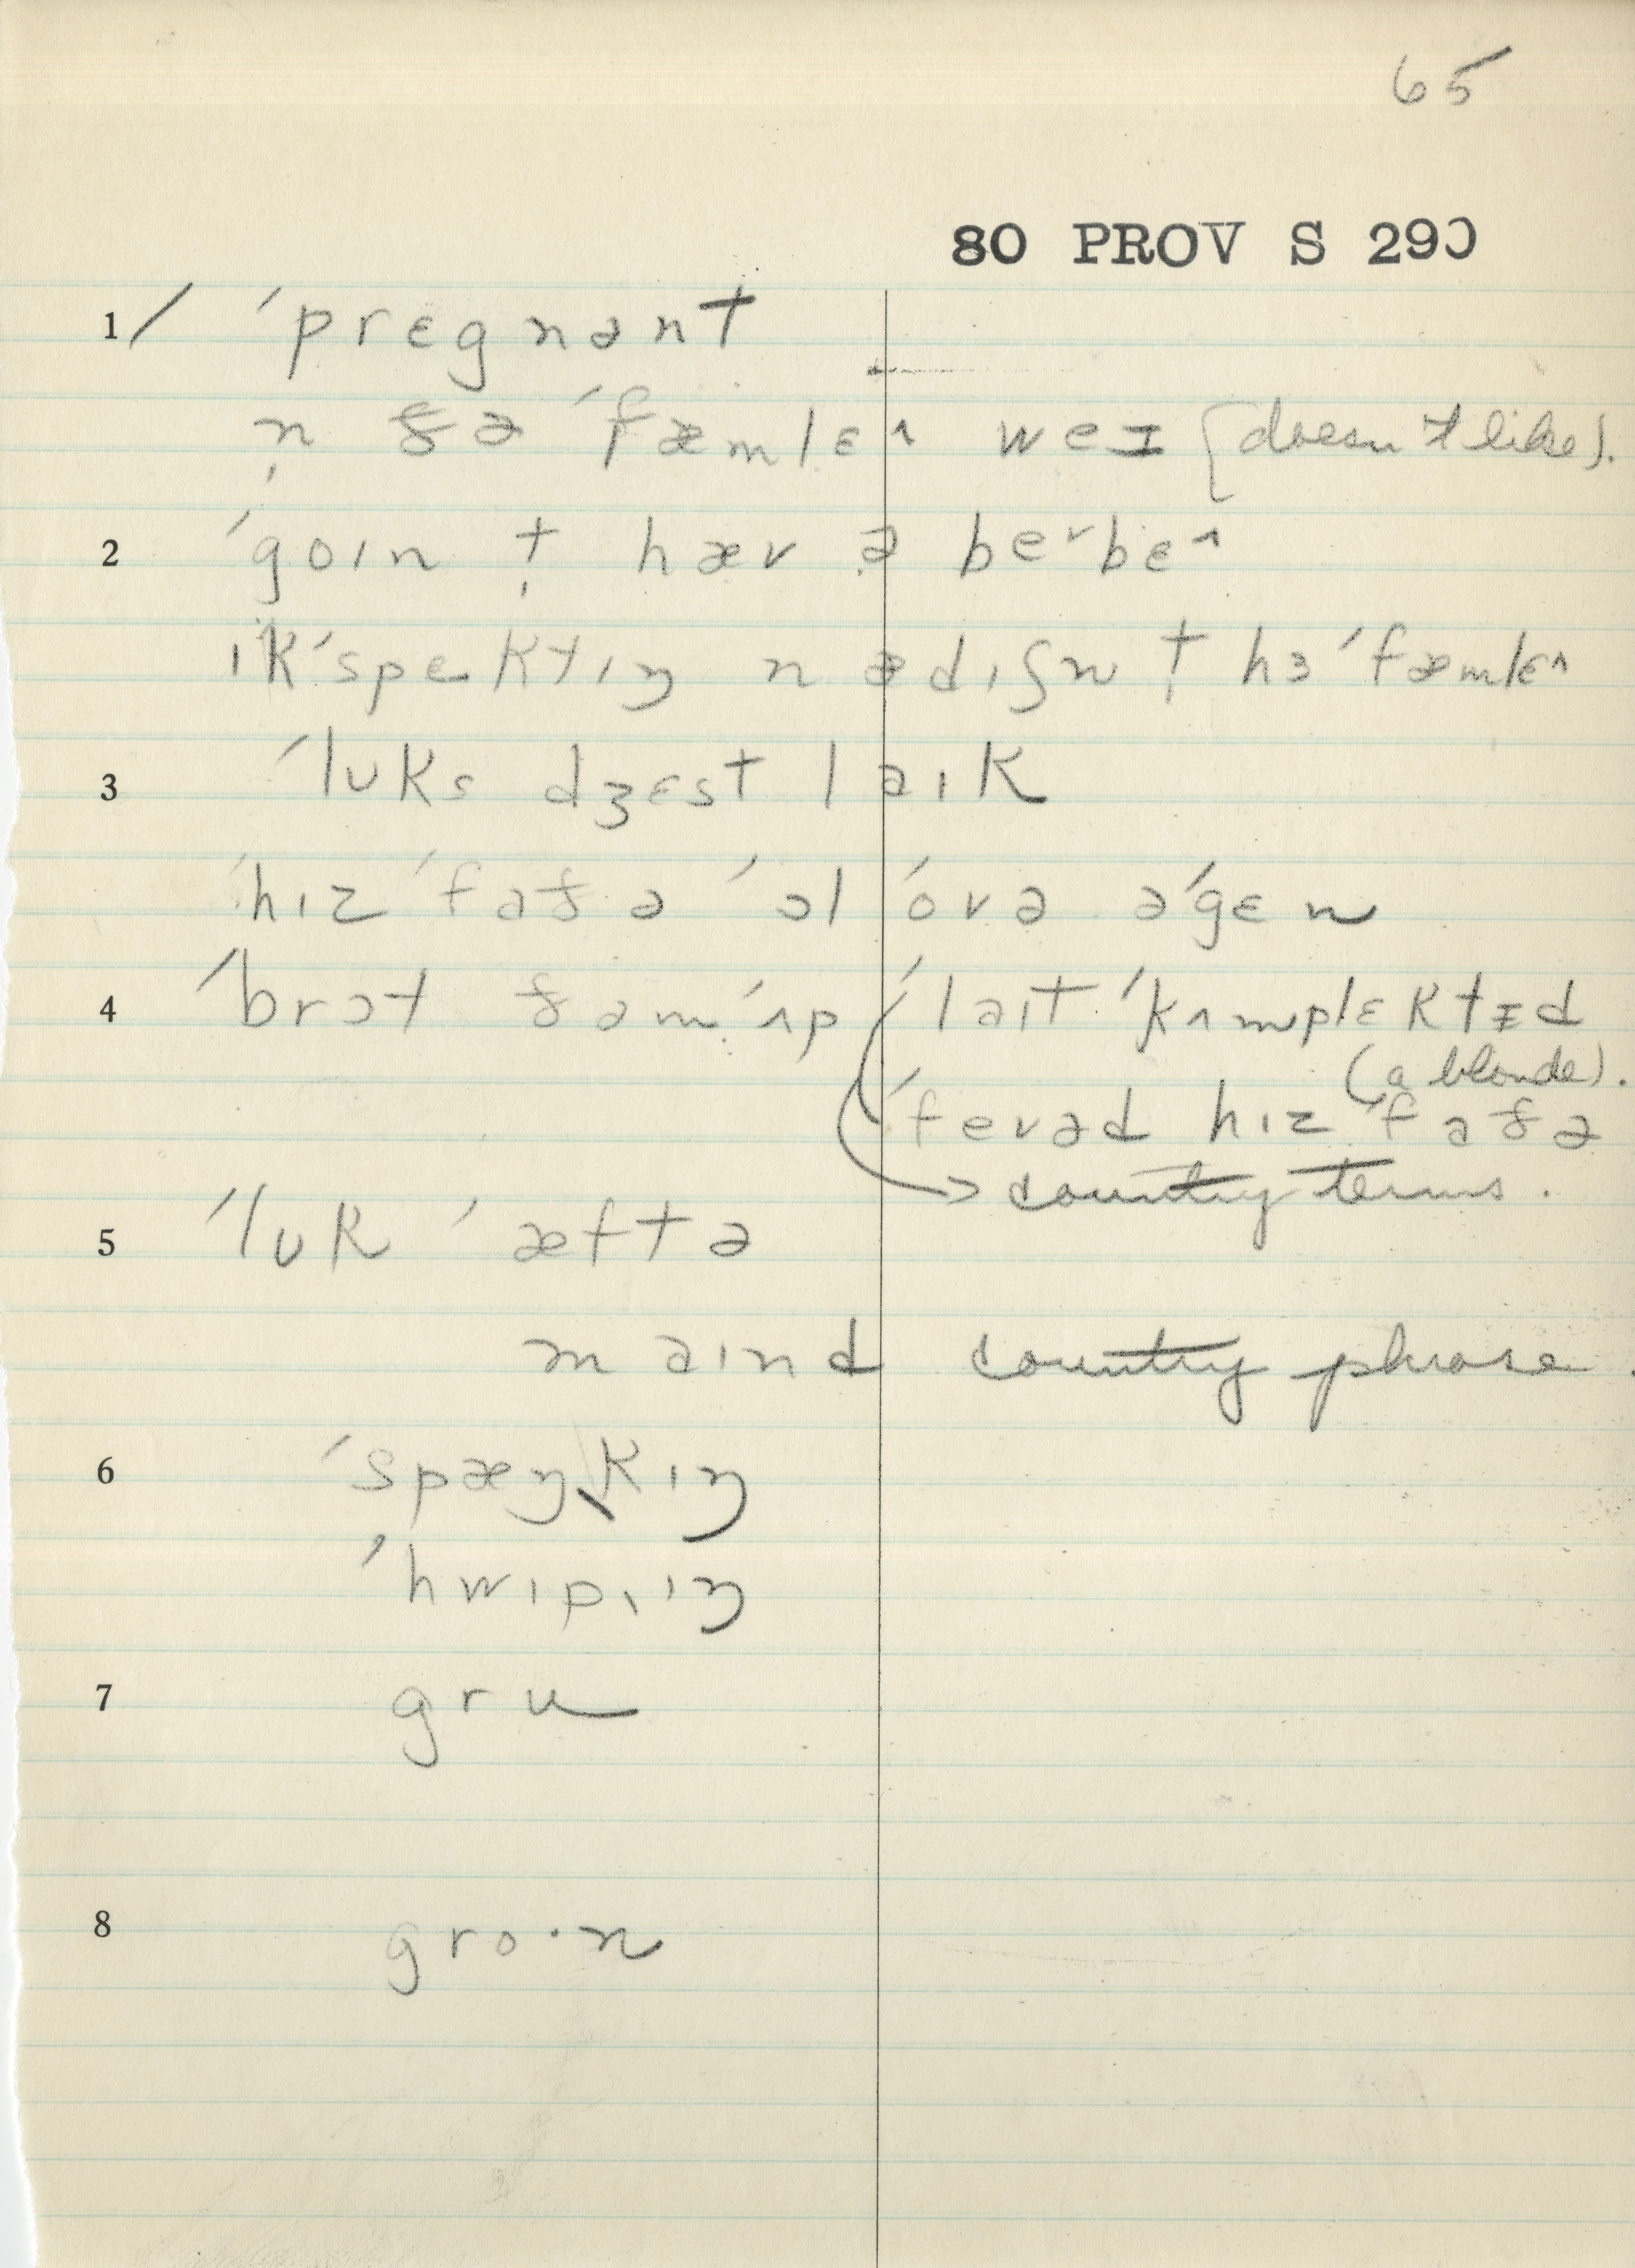 65
80 PROV S 290
1/ ˈprɛgnənt
n̩ ðə ˈfæmlɛ^ weɪ (doesn't like).
2 ˈgoɪn t̩ hæv ə beᵛbɛ^
ɪkˈspɛktɪŋ n ədɪʃn t̩ hɜ ˈfæmlɛ^
3 ˈlʊks dʒɛst laɪk
ˈhɪz ˈfaðə ˈɔl ˈovə əˈgɛn
4 ˈbrɔt ðəm ˈʌp ˈlaɪt ˈkʌmplɛktɪd
(a blonde).
ˈfevəd hɪz ˈfaðə
→ country terms.
5 ˈlʊk ˈæftə
maɪnd country phrase.
6 ˈspæŋkɪŋ
ˈhwɪpɪŋ
7 gru
8 gro·n